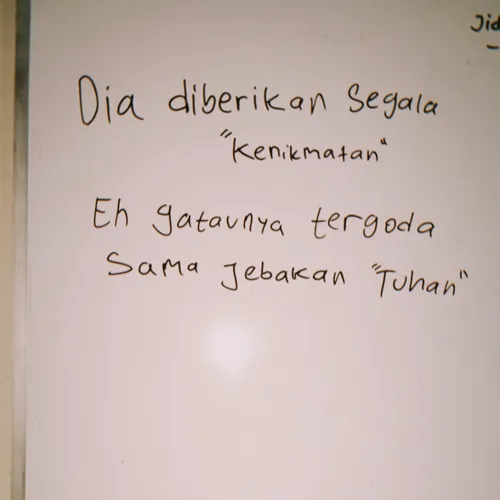 Jid
Dia diberikan Segala
"Kenikmatan"
Eh gataunya tergoda
Sama Jebakan "Tuhan"